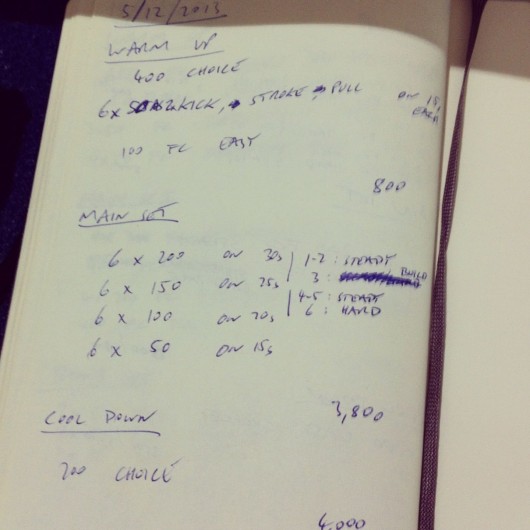 5/12/2013
WARM UP
400 CHOICE
6x KICK, STROKE, PULL ON 15s EACH
100 FC EASY
800
MAIN SET
6 x 200 ON 30s 1-2: STEADY
6 x 150 ON 25s 3: BUILD
4-5: STEADY
6 x 100 ON 20s 6: HARD
6 x 50 ON 15s
3,800
COOL DOWN
200 CHOICE
4,000